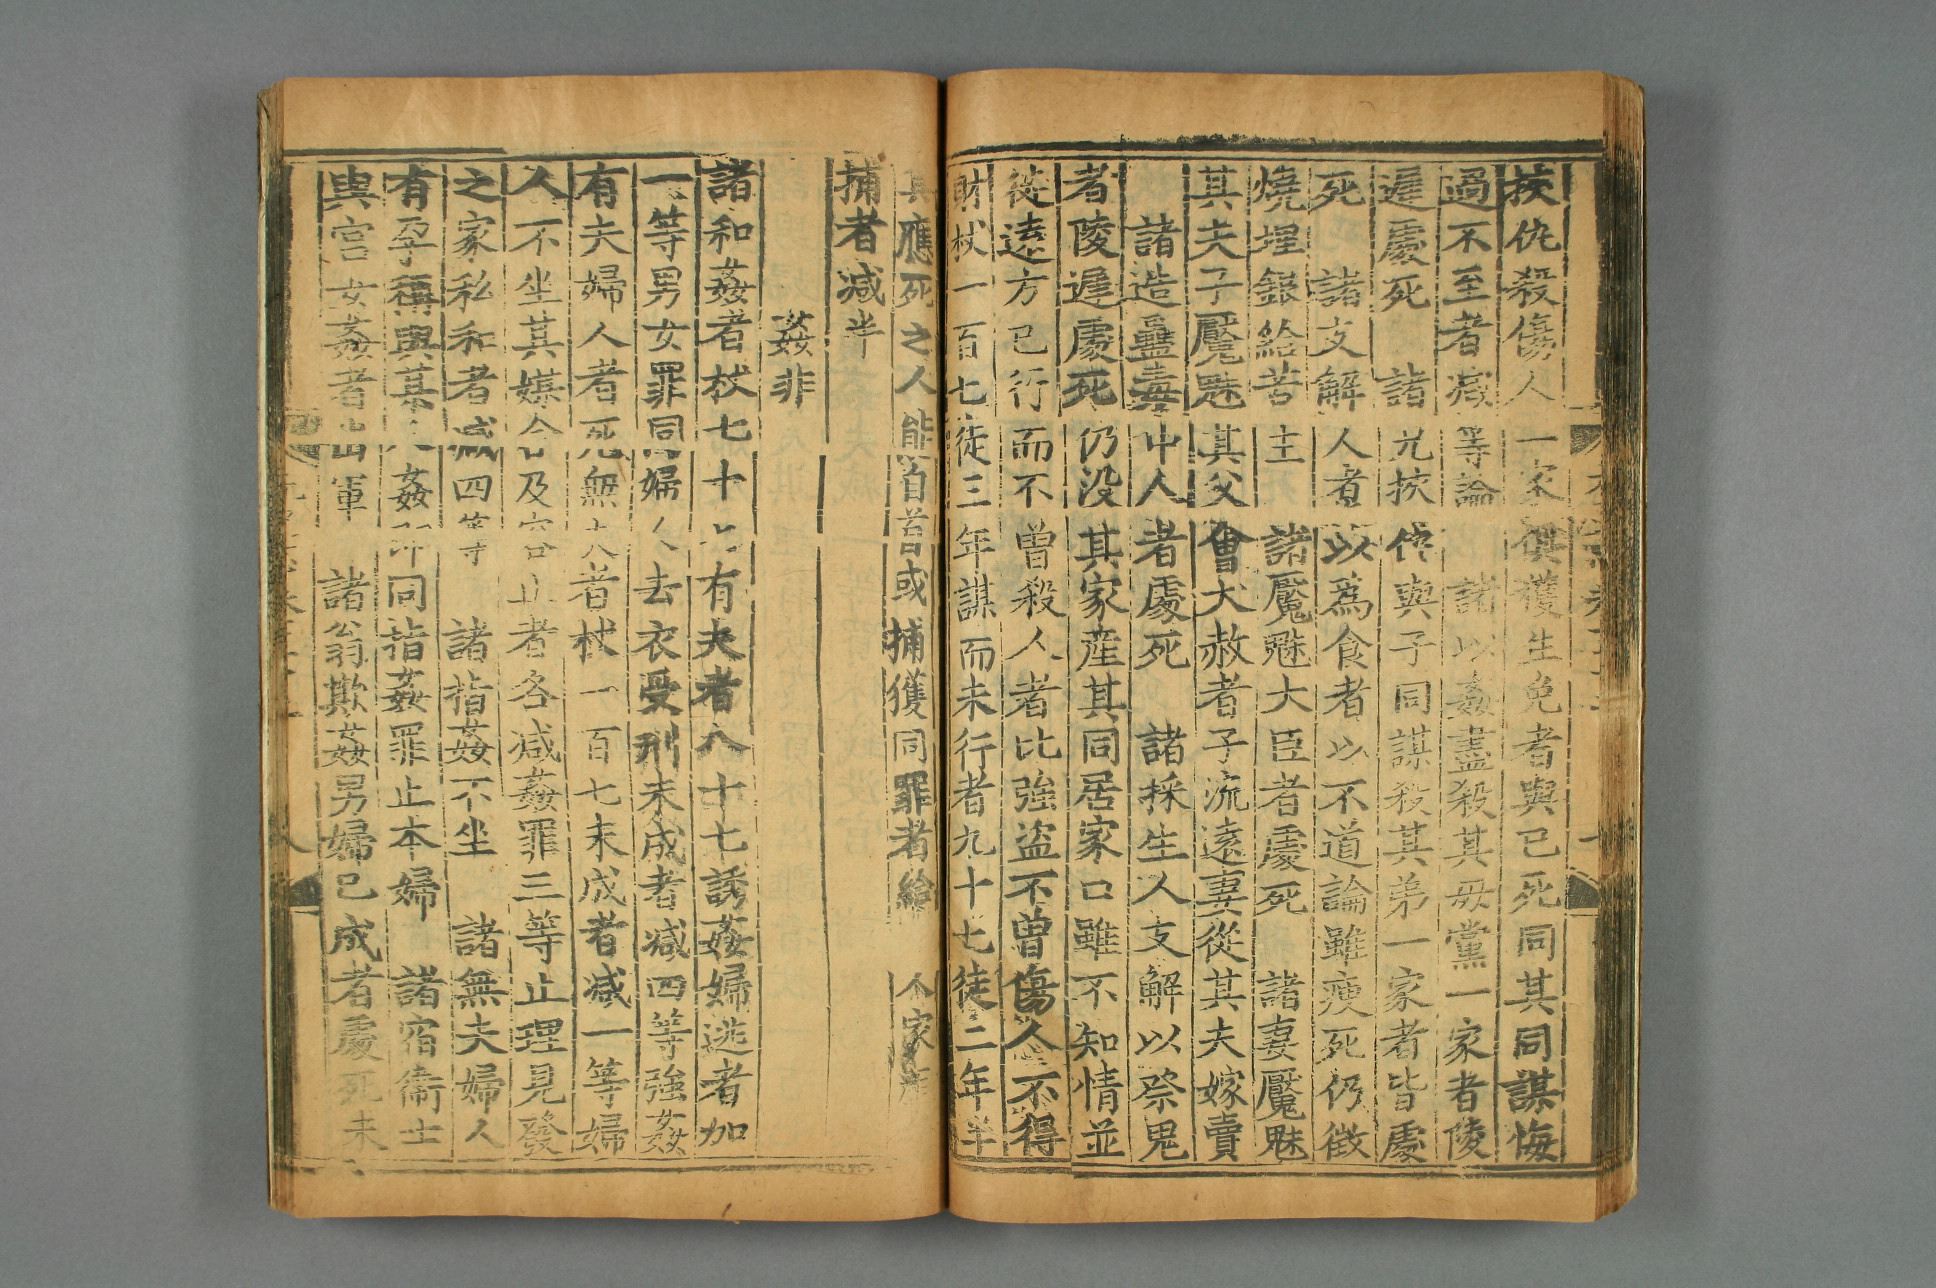 挾仇殺傷人一家俱獲生免者與已死同其同謀悔
過不至者减等論　諸以姦盡殺其母黨一家者陵
遲處死　諸兄挾仇與子同謀殺其弟一家者皆處
死　諸支解人者以爲食者以不道論雖瘐死仍徵
燒埋銀給苦主　諸魘魅大臣者處死　諸妻魘魅
其夫子魘魅其父會大赦者子流遠妻從其夫嫁賣
諸造蠱毒中人者處死　諸採生人支解以祭鬼
者陵遲處死仍没其家産其同居家口雖不知情並
徙遠方已行而不曾殺人者比強盗不曾傷人不得
財杖一百七徒三年謀而未行者九十七徒二年半
其應死之人能自首或捕獲同罪者給　人家産
捕者减半
姦非
諸和姦者杖七十七有夫者八十七誘姦婦逃者加
一等男女罪同婦人去衣受刑未成者减四等強姦
有夫婦人者死無夫者杖一百七未成者减一等婦
人不坐其媒合及容止者各减姦罪三等止理見發
之家私和者减四等　諸指姦不坐　諸無夫婦人
有孕稱與某人姦　同指姦罪止本婦　諸宿衛士
與宫女姦者出軍　諸翁欺姦男婦已成者處死未